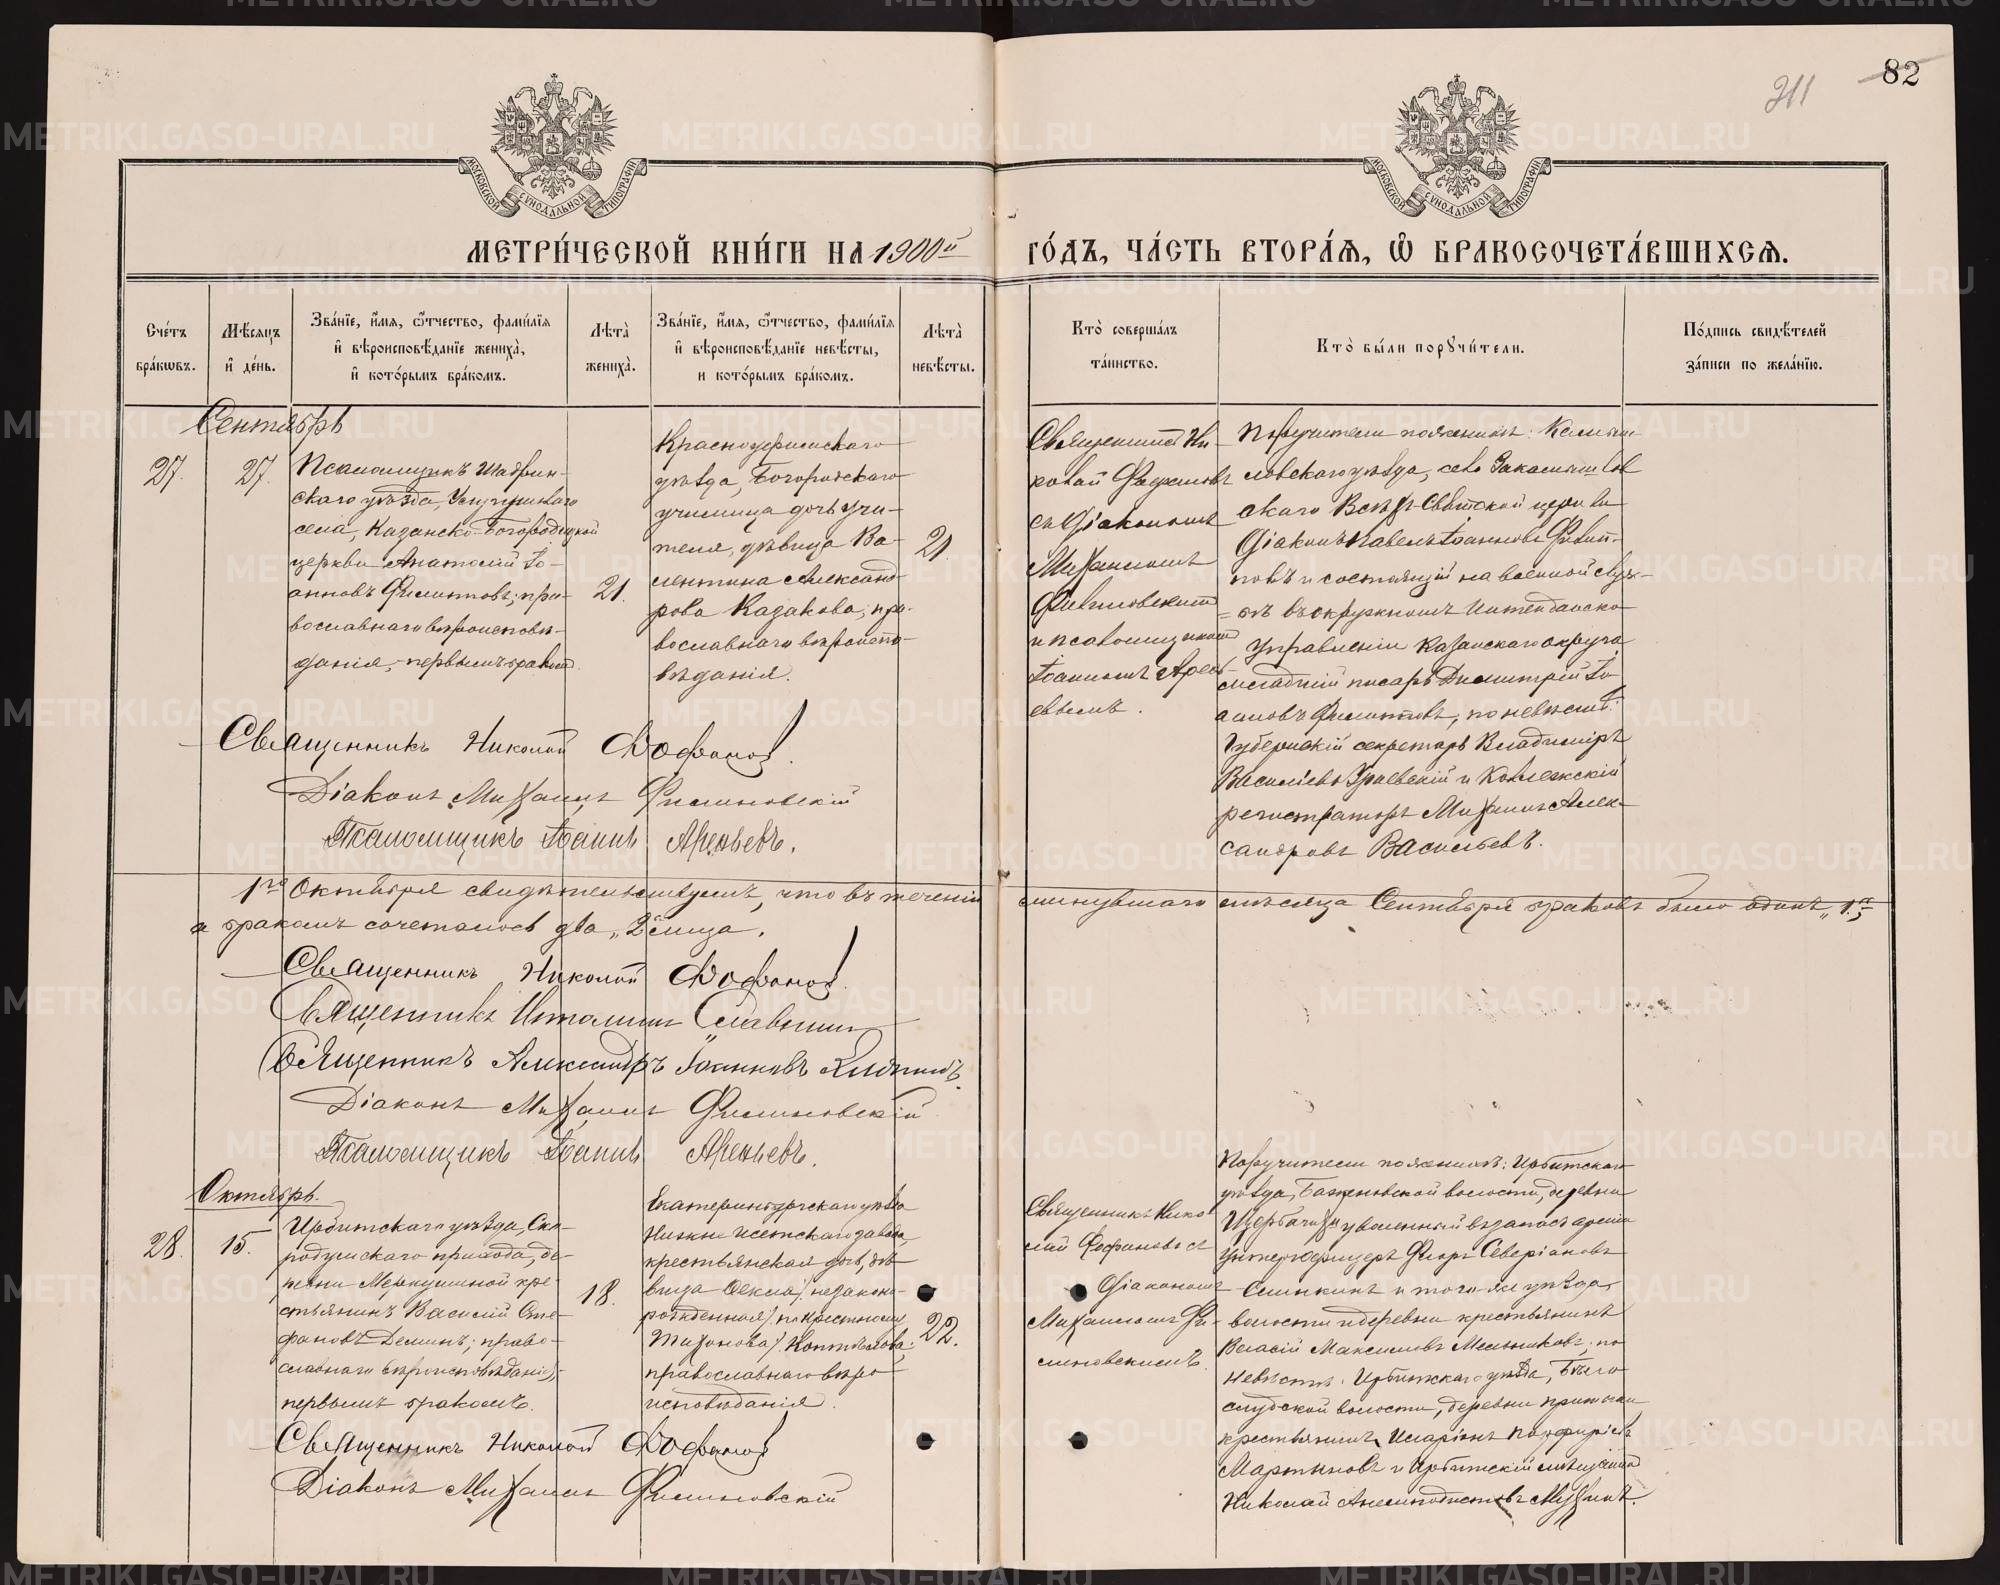 82
211
МОСКОВСКОЙ СѴНОДАЛЬНОЙ ТИПОГРАФІИ
МОСКОВСКОЙ СѴНОДАЛЬНОЙ ТИПОГРАФІИ
МЕТРИ́ЧЕСКОЙ КНИ́ГИ НА 1900й
ГО́ДЪ, ЧА́СТЬ ВТОРА́Ѧ, Ѽ БРАКОСОЧЕТА́ВШИХСѦ.
Сче́тъ бра́кѡвъ.
Мѣ́сѧцъ и҆ де́нь.
Зва́нїе, и҆́мѧ, ѻ҆́тчество, фами́лїѧ
и҆ вѣроисповѣ́данїе жениха̀,
и҆ кото́рымъ бра́комъ.
Лѣта̀ жениха̀.
Зва́нїе, и҆́мѧ, ѻ҆́тчество, фами́лїѧ
и҆ вѣроисповѣ́данїе невѣ́сты,
и кото́рымъ бра́комъ.
Лѣта̀ невѣ́сты.
Кто̀ соверша́лъ
та́инство.
Кто̀ бы́ли порꙋчи́тели.
По́дпись свидѣ́телей
за́писи по жела́нїю.
Сентябрь
27.
27.
Псаломщикъ Шадрин-
скаго уѣзда,
села, Казанско-Богородицкой
церкви Анатолій Іо-
анновъ Филитовъ, пра-
вославнаго вѣроисповѣ-
данія, первымъ бракомъ.
21.
Красноуфимскаго
уѣзда, Богородскаго
училища дочь учи-
теля, дѣвица Ва-
лентина Александ-
рова Казакова, пра-
вославнаго вѣроиспо-
вѣданія.
21.
Священникъ Ни-
колай Фофановъ
съ Діакономъ
Михаиломъ
Филиновскимъ
и псаломщикомъ
Іоанномъ Арень-
евымъ.
Поручители по женихѣ: Камыш-
ловскаго уѣзда, села
скаго церкви
Діаконъ Павелъ Іоанновъ
и состоящій на военной служ-
бѣ въ окружномъ Интендантско
Управленіи Казанскаго округа
младшій писарь Димитрій Іо
анновъ Филитовъ, по невѣстѣ:
Губернскій секретарь Владиміръ
Васильевъ и Коллежскій
регистраторъ Михаилъ Алек-
сандровъ Васильевъ.
Священникъ Николай Фофановъ.
Діаконъ Михаилъ Филиновскій
Псаломщикъ Іоаннъ Ареньевъ.
1го Октября свидѣтельствуемъ, что въ теченіи минувшаго мѣсяца Сентября браковъ было одинъ „1“,
а бракомъ сочеталось два „2“ лица.
Священникъ Николай Фофановъ.
Священникъ Славнин
Священникъ Александръ Іоанновъ
Діаконъ Михаилъ Филиновскій
Псаломщикъ Іоаннъ Ареньевъ.
Октябрь.
28.
15.
Ирбитскаго уѣзда, Ска-
родумскаго прихода, де-
ревни Меркушиной кре-
стьянинъ Василій Сте-
фановъ Деминъ; право-
славнаго вѣроисповѣданія,
первымъ бракомъ.
18.
Екатеринбургскаго уѣзда
Нижне Исетскаго завода,
крестьянская дочь, дѣ-
вица Ѳекла /незаконо-
рожденная/ по крестному
Тихонова/
православнаго вѣро-
исповѣданія.
22.
Священникъ Нико
лай Фофановъ съ
Діакономъ
Михаиломъ Фи-
линовскимъ.
Поручители по женихѣ: Ирбитскаго
уѣзда, Баженовской волости, деревни
уволенный въ запасъ арміи
унтеръ-офицеръ Флоръ Северіановъ
и того-же уѣзда,
волости и деревни крестьянинъ
Власій Максимовъ Мельниковъ; по
невѣстѣ: Ирбитскаго уѣзда, Бѣло
слудской волости, деревни
крестьянинъ Иларіонъ Порфиріевъ
Мартыновъ и Ирбитскій мѣщанинъ
Николай
Священникъ Николай Фофановъ
Діаконъ Михаилъ Филиновскій
METRIKI.GASO-URAL.RU